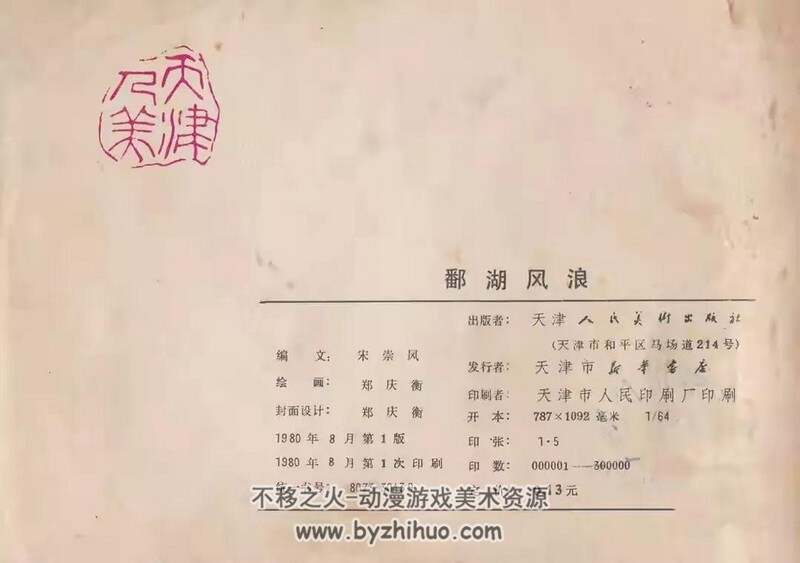 天津
人美
鄱湖风浪
编 文: 宋崇风
绘 画: 郑庆衡
封面设计: 郑庆衡
1980年8月第1版
1980年8月第1次印刷
出版者: 天津人民美术出版社
(天津市和平区马场道214号)
发行者: 天津市新华书店
印刷者: 天津市人民印刷厂印刷
开 本: 787×1092毫米 1/64
印 张: 1·5
印 数: 000001—300000
13元
不移之火-动漫游戏美术资源
www.byzhihuo.com